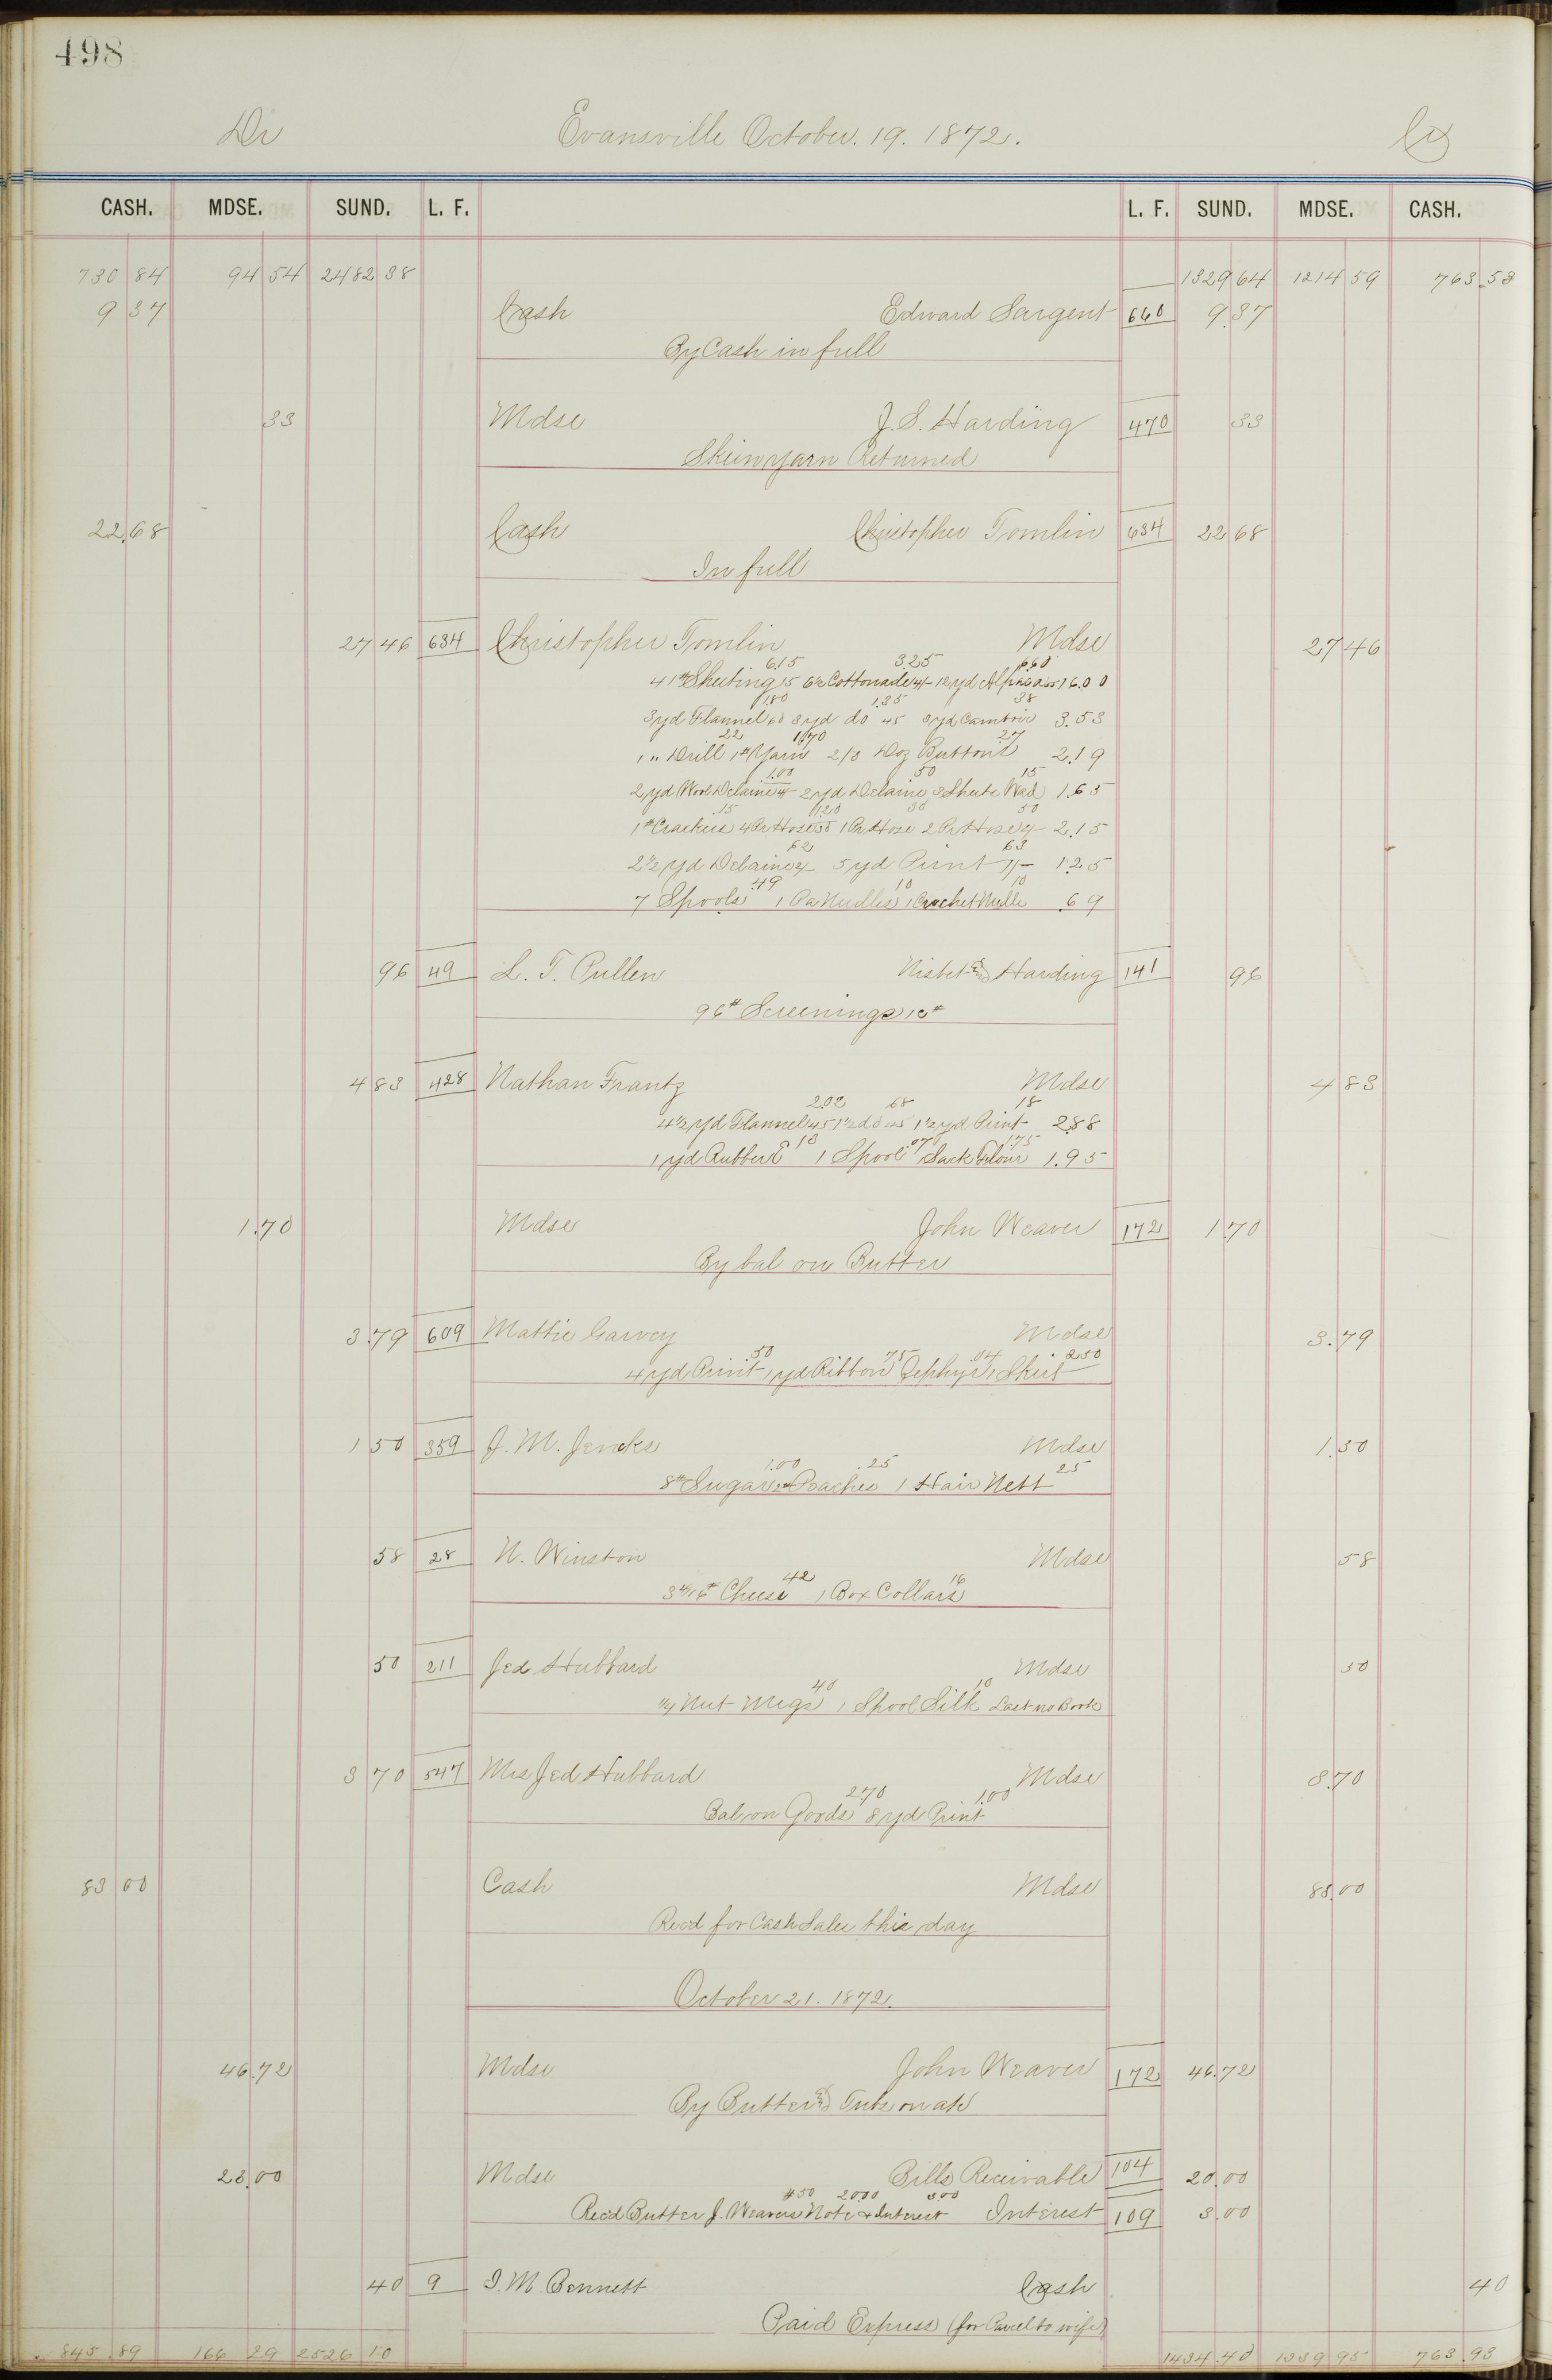 498
Dr Evansville October. 19. 1872. Cr
CASH. MDSE. SUND. L. F. L. F. SUND. MDSE. CASH.
730 84 94 54 2482 38 1329 64 1214 59 763.53
9 37 Cash Edward Sargent 660 9.37
By Cash in full
33 Mdse J. S. Harding 470 33
Skein yarn Returned
22.68 Cash Christopher Tomlin 634 22 68
In full
27 46 634 Christopher Tomlin Mdse 27 46
6.15 3.25 6.60
41# Sheeting 15 6½ Cottonade 4/- 12 yd Alpaca 55 16.00
1.80 1.35 38
3 yd Flannel 60 3 yd do 45 3 yd Cambric 3.53
22 1.70 27
1 " Drill 1# Yarn 2/3 Doz Buttons 2.19
1.00 50 15
2 yd Wool Delaine 4/- 2 yd Delaine 3 Sheets Wad 1.65
15 1.20 30 50
1# Crackers 4 Pr Hose 30 1 Pr Hose 2 Pr Hose 2/- 2.15
62 63
2½ yd Delaine 2/- 5 yd Print 1/- 1.25
.49 10 10
7 Spools 1 Pa Needles 1 Crochet Nedle .69
96 49 L. T. Pullen Nisbet & Harding 141 96
96# Screenings 1c#
4 83 428 Nathan Frantz Mdse 4 83
2.02 .68 18
4½ yd Flannel 45 1½ do 45 1½ yd Print 2.88
13 .07 1.75
1 yd Rubber C 1 Spool 1 Sack Flour 1.95
1.70 Mdse John Weaver 172 1.70
By bal on Butter
3.79 609 Mattie Garvey Mdse 3.79
50 75 .04 2.50
4 yd Print 1 yd Ribbon Zephyr 1 Skirt
1 50 359 J. M. Jencks Mdse 1.50
1.00 .25 25
8# Sugar 2# Peaches 1 Hair Nett
58 28 N. Winston Mdse 58
42 16
3#/16# Cheese 1 Box Collars
50 211 Jed Hubbard Mdse 50
40 10
¼ Nut Megs 1 Spool Silk Last no Book
3 70 547 Mrs Jed Hubbard Mdse 3.70
2.70 1.00
Bal on Goods 8 yd Print
83 00 Cash Mdse 83.00
Rec'd for Cash Sales this day
October 21. 1872.
46.72 Mdse John Weaver 172 46.72
By Butter & Tubs on a/c
23.00 Mdse Bills Receivable 104 20.00
#50 20.00 3.00
Rec'd Butter J. Weavers Note & Interest Interest 109 3.00
40 9 I. M. Bennett Cash 40
Paid Express (for Parcel to wife)
845.89 166 29 2526 10 1434.40 1339 95 763.93